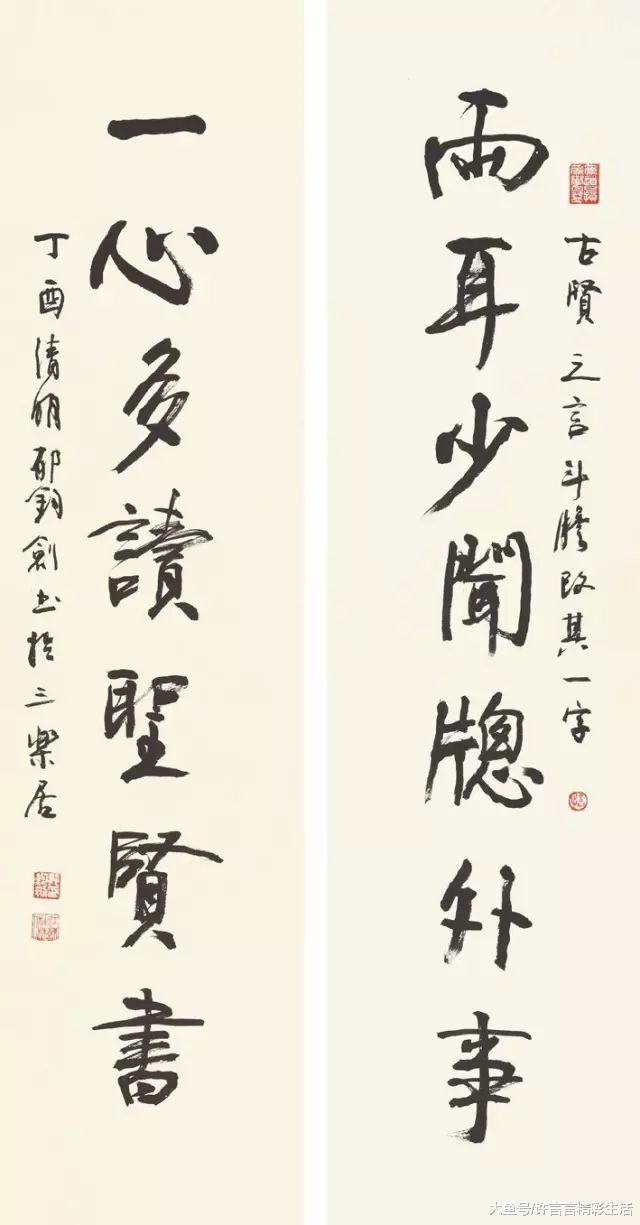 古賢之言斗膽改其一字
兩耳少聞牕外事
一心多讀聖賢書
丁酉清明郁鈞劍书於三樂居
大鱼号/许言言精彩生活